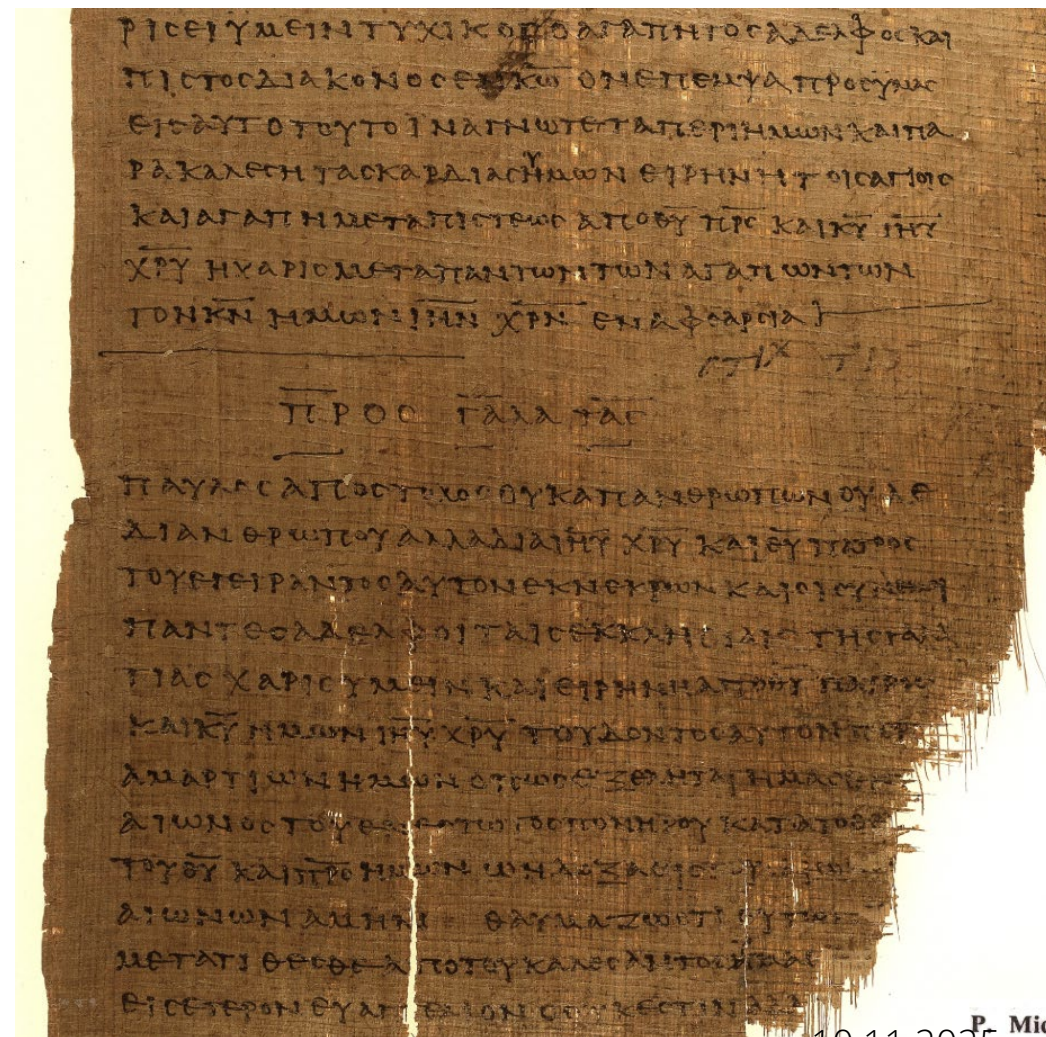 ΡΙCΕΙ ΥΜΕΙΝ ΤΥΧΙΚΟC Ο ΑΓΑΠΗΤΟC ΑΔΕΛΦΟC ΚΑΙ
ΠΙCΤΟC ΔΙΑΚΟΝΟC ΕΝ Κ̅Ω̅ ΟΝ ΕΠΕΜΨΑ ΠΡΟC ΥΜΑC
ΕΙC ΑΥΤΟ ΤΟΥΤΟ ΙΝΑ ΓΝΩΤΕ ΤΑ ΠΕΡΙ ΗΜΩΝ ΚΑΙ ΠΑ
ΡΑΚΑΛΕCΗ ΤΑC ΚΑΡΔΙΑC ΗΜΩΝ ΕΙΡΗΝΗ ΤΟΙC ΑΓΙΟΙC
ΚΑΙ ΑΓΑΠΗ ΜΕΤΑ ΠΙCΤΕΩC ΑΠΟ Θ̅Υ̅ Π̅Ρ̅C̅ ΚΑΙ Κ̅Υ̅ Ι̅Η̅Υ̅
Χ̅Ρ̅Υ̅ Η ΧΑΡΙC ΜΕΤΑ ΠΑΝΤΩΝ ΤΩΝ ΑΓΑΠΩΝΤΩΝ
ΤΟΝ Κ̅Ν̅ ΗΜΩΝ Ι̅Η̅Ν̅ Χ̅Ρ̅Ν̅ ΕΝ ΑΦΘΑΡCΙΑ
CΤΙΧ
ΠΡΟC ΓΑΛΑΤΑC
ΠΑΥΛΟC ΑΠΟCΤΟΛΟC ΟΥΚ ΑΠ ΑΝΘΡΩΠΩΝ ΟΥΔΕ
ΔΙ ΑΝΘΡΩΠΟΥ ΑΛΛΑ ΔΙΑ Ι̅Η̅Υ̅ Χ̅Ρ̅Υ̅ ΚΑΙ Θ̅Υ̅ ΠΑΤΡΟC
ΤΟΥ ΕΓΕΙΡΑΝΤΟC ΑΥΤΟΝ ΕΚ ΝΕΚΡΩΝ ΚΑΙ ΟΙ CΥΝ ΕΜΟΙ
ΠΑΝΤΕC ΑΔΕΛΦΟΙ ΤΑΙC ΕΚΚΛΗCΙΑΙC ΤΗC ΓΑΛΑ
ΤΙΑC ΧΑΡΙC ΥΜΕΙΝ ΚΑΙ ΕΙΡΗΝΗ ΑΠΟ Θ̅Υ̅ ΠΑΤΡΟC
ΚΑΙ Κ̅Υ̅ ΗΜΩΝ Ι̅Η̅Υ̅ Χ̅Ρ̅Υ̅ ΤΟΥ ΔΟΝΤΟC ΑΥΤΟΝ ΠΕΡΙ
ΑΜΑΡΤΙΩΝ ΗΜΩΝ ΟΠΩC ΕΞΕΛΗΤΑΙ ΗΜΑC ΕΚ
ΑΙΩΝΟC ΤΟΥ ΕΝΕCΤΩΤΟC ΠΟΝΗΡΟΥ ΚΑΤΑ ΤΟ ΘΕ
ΤΟΥ Θ̅Υ̅ ΚΑΙ Π̅Ρ̅C̅ ΗΜΩΝ Ω Η ΔΟΞΑ ΕΙC
ΑΙΩΝΩΝ ΑΜΗΝ ΘΑΥΜΑΖΩ ΟΤΙ ΟΥΤΩC
ΜΕΤΑΤΙΘΕCΘΕ ΑΠΟ ΤΟΥ ΚΑΛΕCΑΝΤΟC ΥΜΑC
ΕΙC ΕΤΕΡΟΝ ΕΥΑΓΓΕΛΙΟΝ Ο ΟΥΚ ΕCΤΙΝ ΑΛΛ
P. Mic
10.11.2025